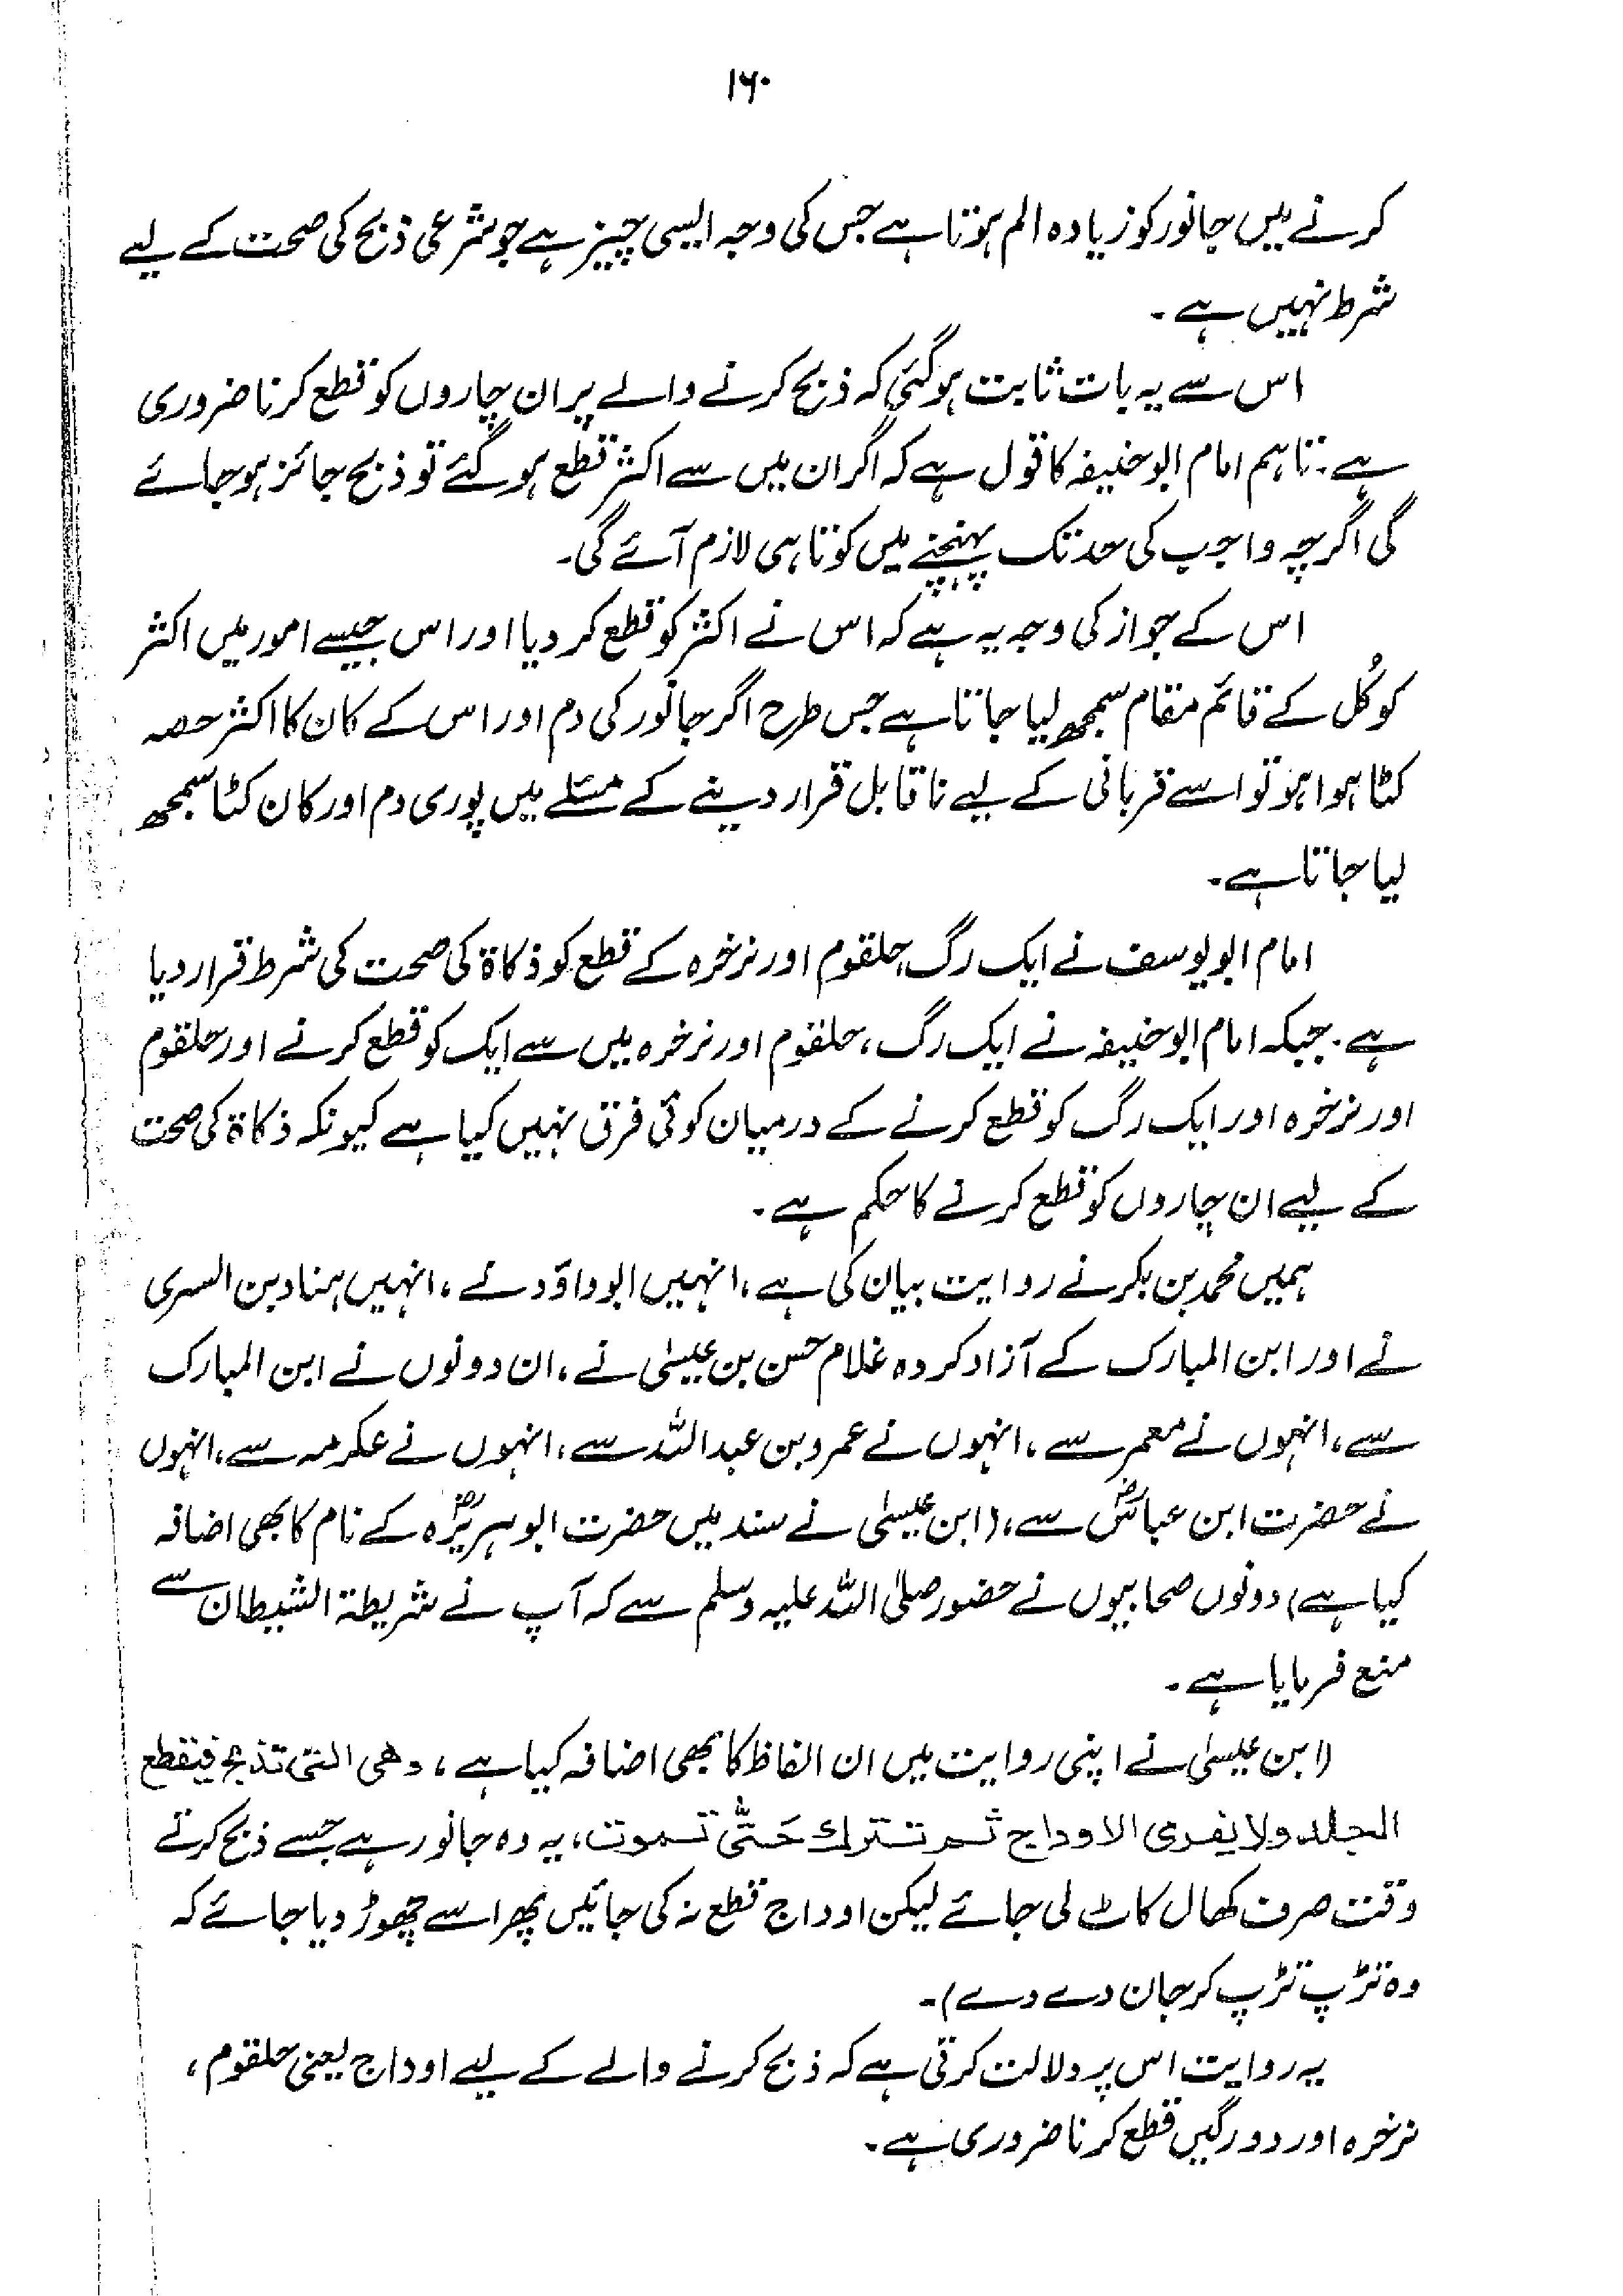 ۱۶۰
کرنے میں جانور کو زیادہ الم ہوتا ہے جس کی وجہ ایسی چیز ہے جو شرعی ذبح کی صحت کے لیے
شرط نہیں ہے۔
اس سے یہ بات ثابت ہوگئی کہ ذبح کرنے والے پر ان چاروں کو قطع کرنا ضروری
ہے۔ تاہم امام ابوحنیفہ کا قول ہے کہ اگر ان میں سے اکثر قطع ہو گئے تو ذبح جائز ہو جائے
گی اگرچہ واجب کی حد تک پہنچنے میں کوتاہی لازم آئے گی۔
اس کے جواز کی وجہ یہ ہے کہ اس نے اکثر کو قطع کر دیا اور اس جیسے امور میں اکثر
کو کُل کے قائم مقام سمجھ لیا جاتا ہے جس طرح اگر جانور کی دم اور اس کے کان کا اکثر حصہ
کٹا ہوا ہو تو اسے قربانی کے لیے ناقابل قرار دینے کے مسئلے میں پوری دم اور کان کٹا سمجھ
لیا جاتا ہے۔
امام ابو یوسف نے ایک رگ، حلقوم اور نرخرہ کے قطع کو ذکاۃ کی صحت کی شرط قرار دیا
ہے۔ جبکہ امام ابوحنیفہ نے ایک رگ، حلقوم اور نرخرہ میں سے ایک کو قطع کرنے اور حلقوم
اور نرخرہ اور ایک رگ کو قطع کرنے کے درمیان کوئی فرق نہیں کیا ہے کیونکہ ذکاۃ کی صحت
کے لیے ان چاروں کو قطع کرنے کا حکم ہے۔
ہمیں محمد بن بکر نے روایت بیان کی ہے، انہیں ابوداؤد نے، انہیں ہناد بن السری
نے اور ابن المبارک کے آزاد کردہ غلام حسن بن عیسیٰ نے، ان دونوں نے ابن المبارک
سے، انہوں نے معمر سے، انہوں نے عمرو بن عبداللہ سے، انہوں نے عکرمہ سے، انہوں
نے حضرت ابن عباسؓ سے، (ابن عیسیٰ نے سند میں حضرت ابوہریرہؓ کے نام کا بھی اضافہ
کیا ہے) دونوں صحابیوں نے حضور صلی اللہ علیہ وسلم سے کہ آپ نے شریطۃ الشیطان سے
منع فرمایا ہے۔
(ابن عیسیٰ نے اپنی روایت میں ان الفاظ کا بھی اضافہ کیا ہے، وھی التی تذبح فیقطع
الجلد ولا یفری الاوداج ثم تترك حَتّٰی تموت، یہ وہ جانور ہے جسے ذبح کرتے
وقت صرف کھال کاٹ لی جائے لیکن اوداج قطع نہ کی جائیں پھر اسے چھوڑ دیا جائے کہ
وہ تڑپ تڑپ کر جان دے دے)۔
یہ روایت اس پر دلالت کرتی ہے کہ ذبح کرنے والے کے لیے اوداج یعنی حلقوم،
نرخرہ اور دو رگیں قطع کرنا ضروری ہے۔